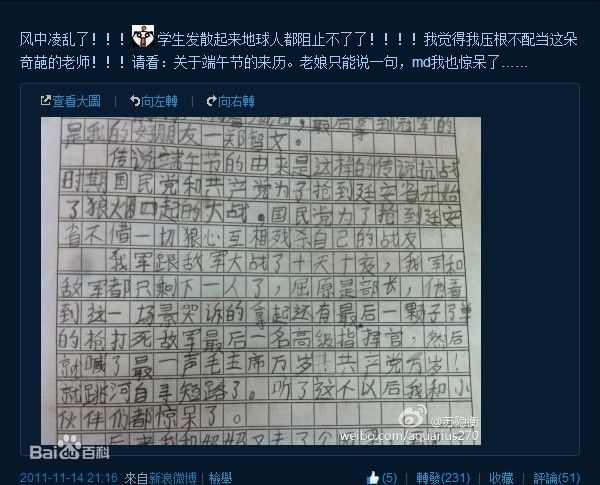 风中凌乱了！！！学生发散起来地球人都阻止不了了！！！！我觉得我压根不配当这朵
奇葩的老师！！！请看：关于端午节的来历。老娘只能说一句，md我也惊呆了……
查看大圖 | 向左轉 | 向右轉
最后拿到冠军的
是我的好朋友一郑智文。
传说端午节的由来是这样的传说抗战
时期国民党和共产党为了抢到廷安省开始
了狼火四起的大战。国民党为了抢到廷安
省不惜一切狠心互相残杀自己的战友
我军跟敌军大战了十天十夜，我军和
敌军都只剩下一人了，屈原是部长，他看
到这一场景哭诉的拿起还有最后一颗子弹
的枪打死敌军最后一名高级指挥官，然后
就喊了最一声毛主席万岁！共产党万岁！
就跳河自寻短路了。听了这个以后我和小
伙伴们都惊呆了。
@苏隐衡
weibo.com/aquarius270
Bai百科
2011-11-14 21:16 來自新浪微博 | 檢舉
(5) | 轉發(231) | 收藏 | 評論(51)